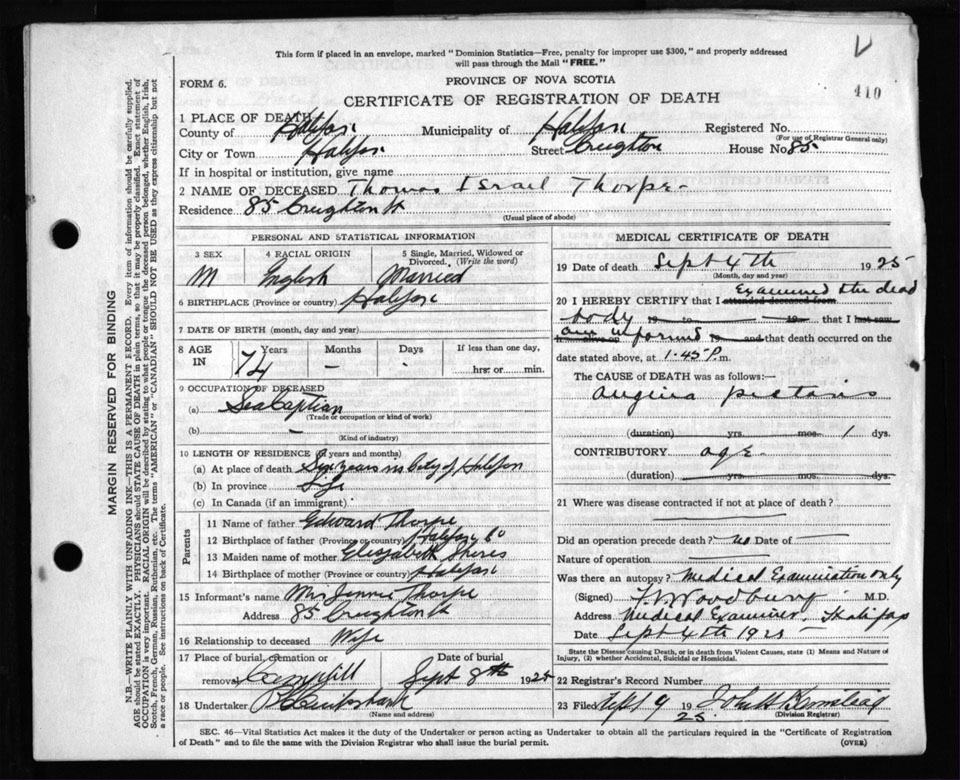 This form if placed in an envelope, marked "Dominion Statistics—Free, penalty for improper use $300," and properly addressed
will pass through the Mail "FREE."
FORM 6.
PROVINCE OF NOVA SCOTIA
410
CERTIFICATE OF REGISTRATION OF DEATH
1 PLACE OF DEATH
County of Halifax Municipality of Halifax Registered No.
(For use of Registrar General only)
City or Town Halifax Street Creighton House No 85
If in hospital or institution, give name
2 NAME OF DECEASED Thomas Israel Thorpe
Residence 85 Creighton St
(Usual place of abode)
PERSONAL AND STATISTICAL INFORMATION
3 SEX 4 RACIAL ORIGIN 5 Single, Married, Widowed or
Divorced. (Write the word)
M English Married
6 BIRTHPLACE (Province or country) Halifax
7 DATE OF BIRTH (month, day and year)
8 AGE IN 74 Years Months – Days - If less than one day,
hrs. or min.
9 OCCUPATION OF DECEASED
(a) Sea Captian
(Trade or occupation or kind of work)
(b) –
(Kind of industry)
10 LENGTH OF RESIDENCE (in years and months)
(a) At place of death Six years in City of Halifax
(b) In province Life
(c) In Canada (if an immigrant)
Parents
11 Name of father Edward Thorpe
12 Birthplace of father (Province or country) Halifax Co
13 Maiden name of mother Elizabeth
14 Birthplace of mother (Province or country) Halifax
15 Informant's name Mrs Jennie Thorpe
Address 85 Creighton St
16 Relationship to deceased Wife
17 Place of burial, cremation or Date of burial
removal Camphill Sept 8th 1925
18 Undertaker Cruikshank
(Name and address)
MEDICAL CERTIFICATE OF DEATH
19 Date of death Sept 4th 1925
(Month, day and year)
Examined the dead
20 I HEREBY CERTIFY that I attended deceased from
body 19 to 19 that I last saw
am informed and that death occurred on the
date stated above, at 1.45 P. m.
The CAUSE of DEATH was as follows:—
Angina pectoris
(duration) yrs. mos. 1 dys.
CONTRIBUTORY age
(duration) yrs. mos. dys.
21 Where was disease contracted if not at place of death?
Did an operation precede death? no Date of —
Nature of operation
Was there an autopsy? Medical Examination only
(Signed) Woodbury M.D.
Address Medical Examiner, Halifax
Date Sept 4th 1925
State the Disease causing Death, or in death from Violent Causes, state (1) Means and Nature of
Injury, (2) whether Accidental, Suicidal or Homicidal.
22 Registrar's Record Number
23 Filed Sept 9 1925
(Division Registrar)
SEC. 46—Vital Statistics Act makes it the duty of the Undertaker or person acting as Undertaker to obtain all the particulars required in the "Certificate of Registration
of Death" and to file the same with the Division Registrar who shall issue the burial permit.
(OVER)
MARGIN RESERVED FOR BINDING
N.B.—WRITE PLAINLY WITH UNFADING INK—THIS IS A PERMANENT RECORD. Every item of information should be carefully supplied.
AGE should be stated EXACTLY. PHYSICIANS should STATE CAUSE OF DEATH in plain terms, so that it may be properly classified. Exact statement of
OCCUPATION is very important. RACIAL ORIGIN will be described by stating to what people or tongue the deceased person belonged, whether English, Irish,
Scotch, French, German, Russian, Ruthenian, etc. The terms "AMERICAN" or "CANADIAN" SHOULD NOT BE USED as they express citizenship but not
a race or people. See instructions on back of Certificate.